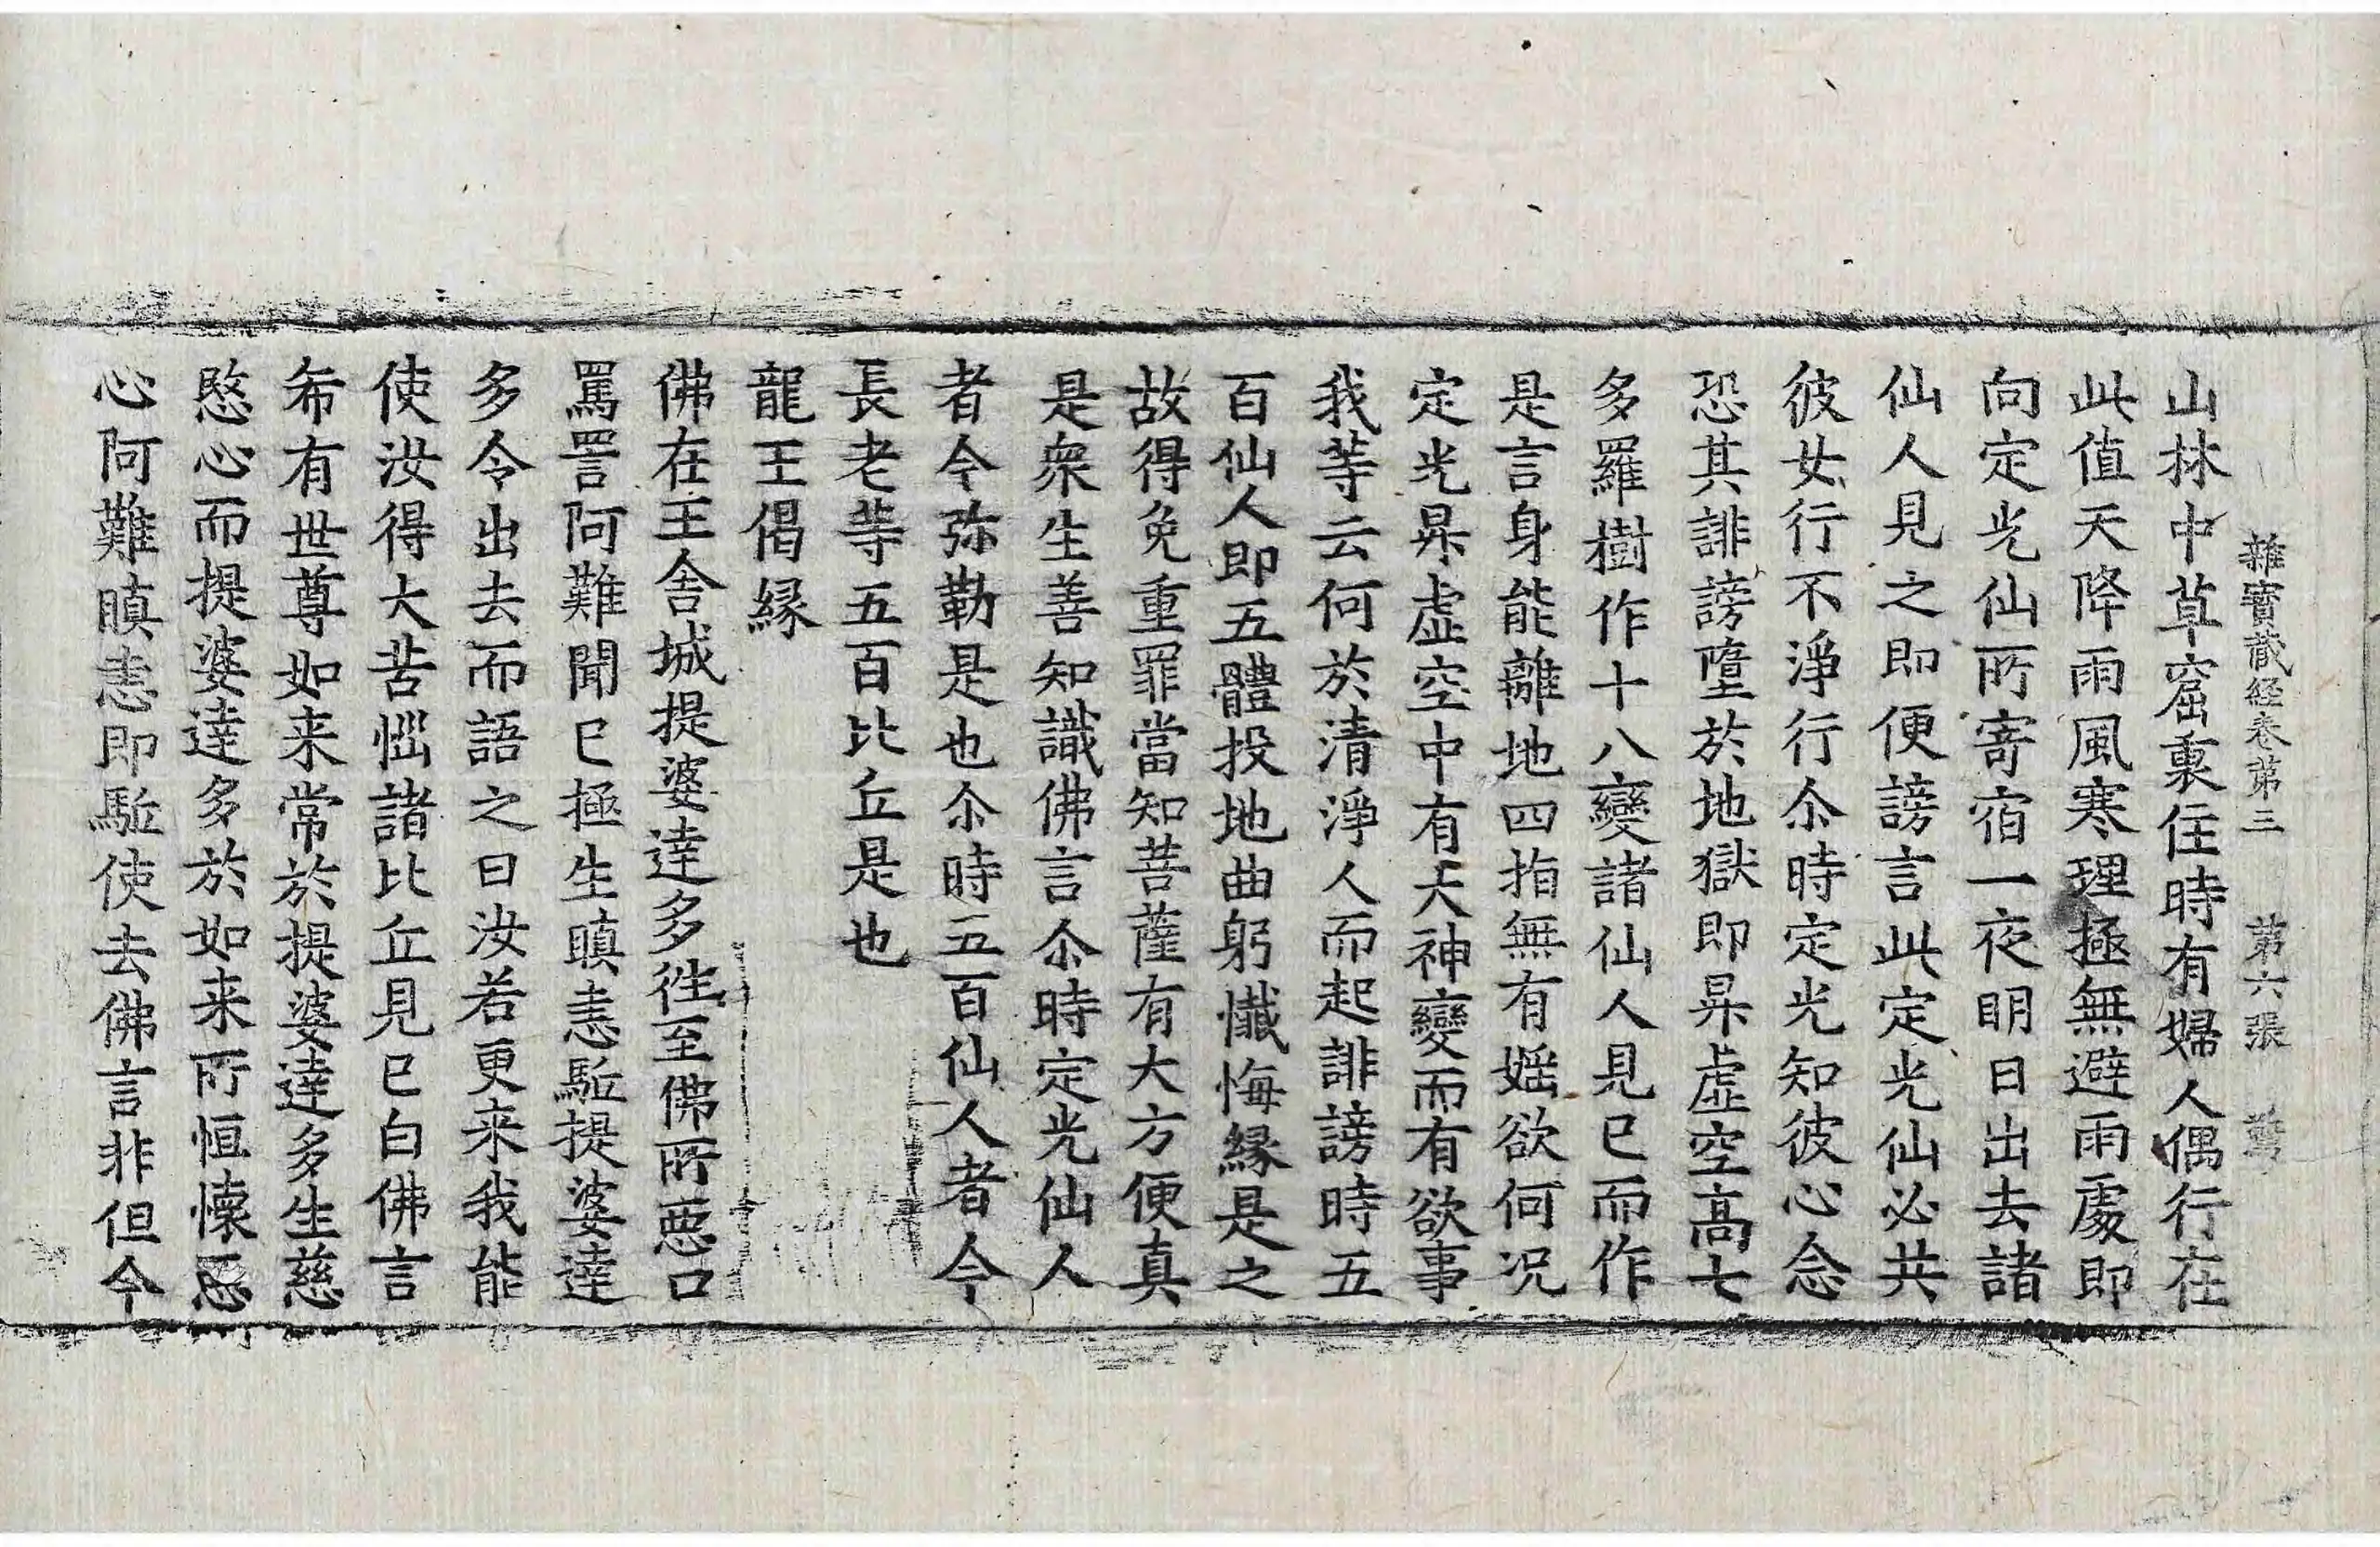 雜寶藏経卷第三 第六張
山林中草窟裏住時有婦人偶行在
此值天降雨風寒理極無避雨處即
向定光仙所寄宿一夜明日出去諸
仙人見之即便謗言此定光仙必共
彼女行不淨行尒時定光知彼心念
恐其誹謗墮於地獄即昇虛空高七
多羅樹作十八變諸仙人見已而作
是言身能離地四指無有婬欲何况
定光昇虛空中有大神變而有欲事
我等云何於清淨人而起誹謗時五
百仙人即五體投地曲躬懺悔縁是之
故得免重罪當知菩薩有大方便真
是衆生善知識佛言尒時定光仙人
者今弥勒是也尒時五百仙人者今
長老等五百比丘是也
龍王偈縁
佛在王舍城提婆達多徃至佛所惡口
罵詈阿難聞已極生瞋恚駈提婆達
多令出去而語之曰汝若更来我能
使汝得大苦惱諸比丘見已白佛言
希有世尊如来常於提婆達多生慈
愍心而提婆達多於如来所恒懐惡
心阿難瞋恚即駈使去佛言非但今